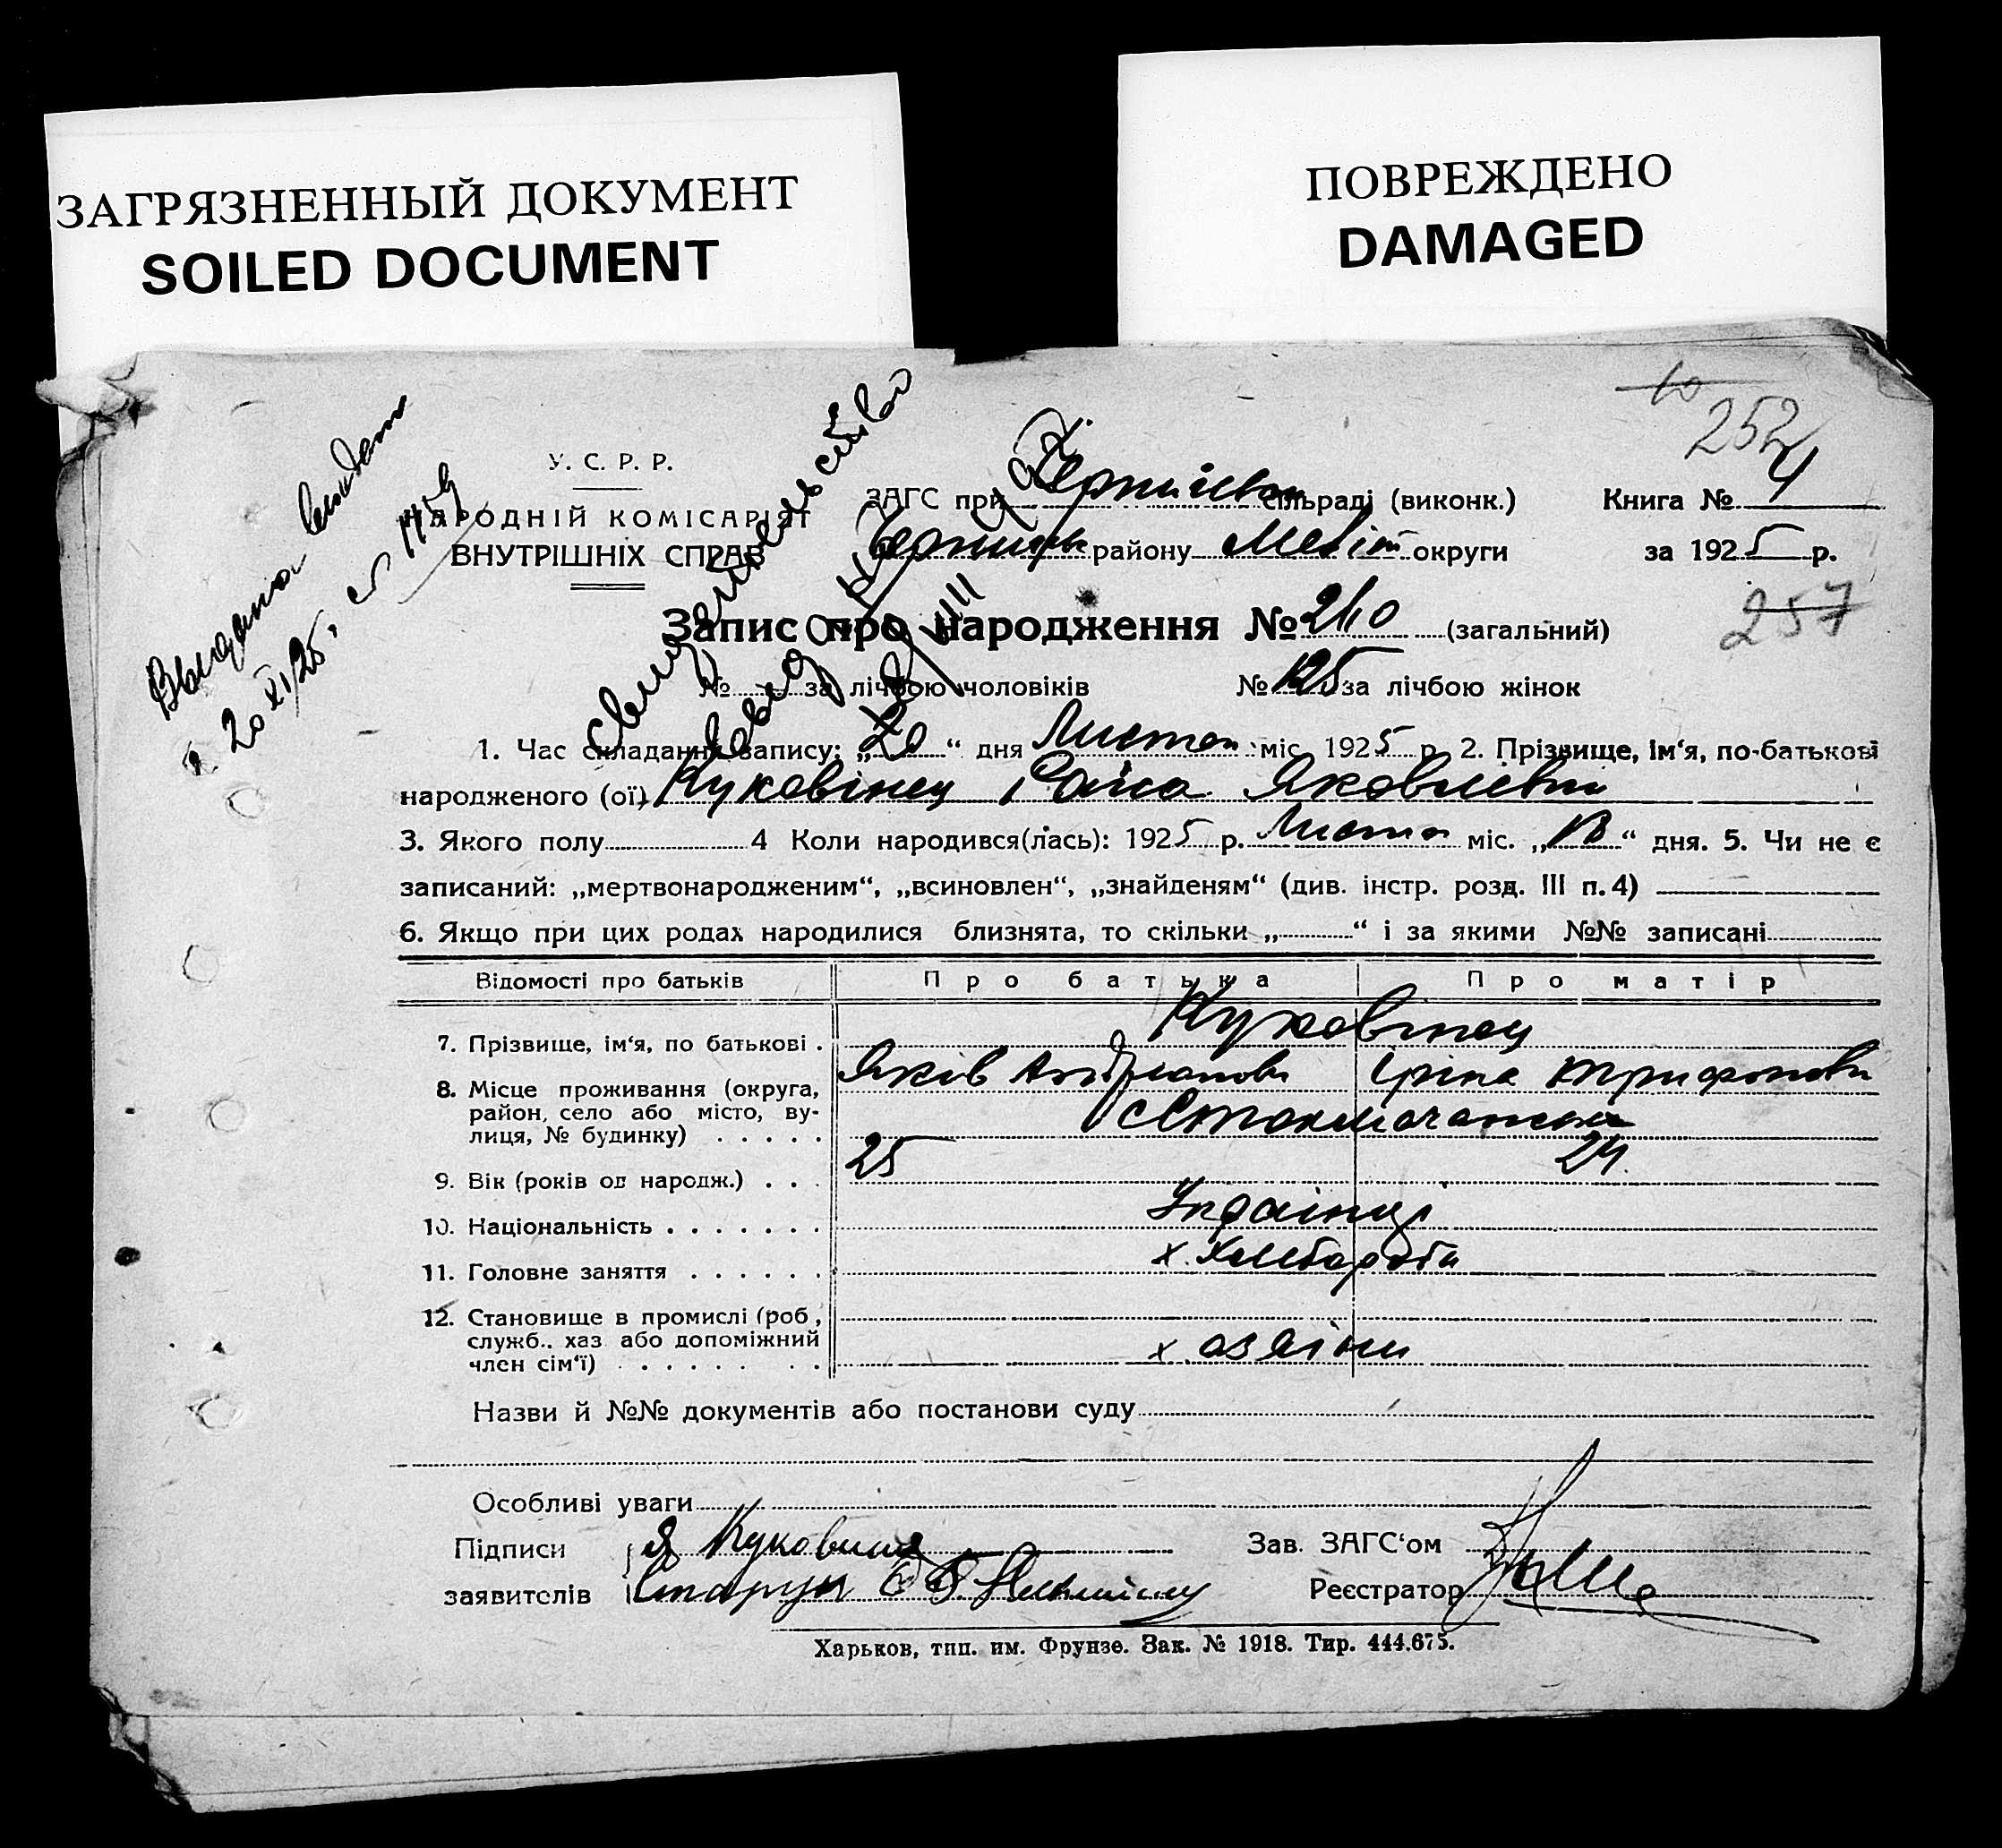 ЗАГРЯЗНЕННЫЙ ДОКУМЕНТ
SOILED DOCUMENT
ПОВРЕЖДЕНО
DAMAGED
252
У. С. Р. Р.
НАРОДНІЙ КОМІСАРІЯТ
ВНУТРІШНІХ СПРАВ
ЗАГС при сільраді (виконк.) Книга № 4
району Меліт округи за 1925 р.
257
Запис про народження № 210 (загальний)
№ за лічбою чоловіків № 125 за лічбою жінок
1. Час складання запису: „20“ дня Листоп міс. 1925 р. 2. Прізвище, ім‘я, по-батькові
народженого (ої) Куковінец Раіса Яковлевна
3. Якого полу 4 Коли народився(лась): 1925 р. Листоп міс. „ “ дня. 5. Чи не є
записаний: „мертвонародженим“, „всиновлен“, „знайденям“ (див. інстр. розд. III п. 4)
6. Якщо при цих родах народилися близнята, то скільки „ “ і за якими №№ записані
Відомості про батьків Про батька Про матір
7. Прізвище, ім‘я, по батькові . Куковінец
Яків Андріанови Ірина Трифонови
8. Місце проживання (округа,
район, село або місто, ву-
лиця, № будинку) . . . . .
9. Вік (років од народж.) . . . 25 24
10. Національність . . . . . . . Українці
11. Головне заняття . . . . . . х. Хлебороби
12. Становище в промислі (роб.,
служб., хаз. або допоміжний
член сім‘ї) . . . . . . . хозяїни
Назви й №№ документів або постанови суду
Особливі уваги
Підписи Я Куковинец Зав. ЗАГС‘ом
заявителів Реєстратор
Харьков, тип. им. Фрунзе. Зак. № 1918. Тир. 444.675.
Выдана
20 XI/25
свидетельство